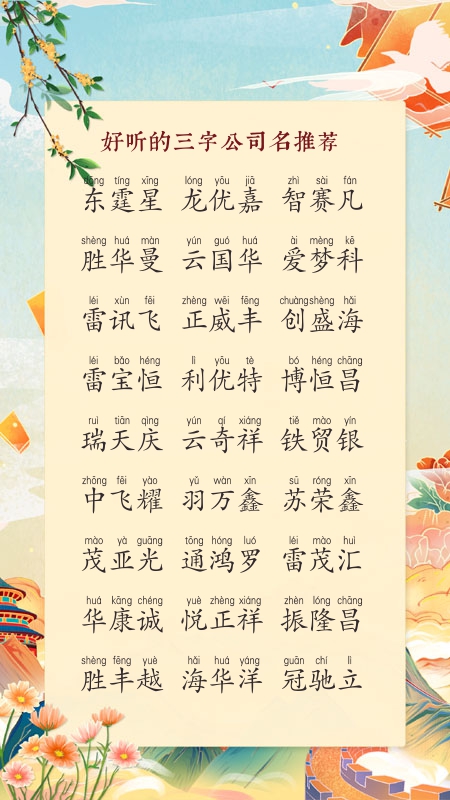 好听的三字公司名推荐
dōng tíng xīng lóng yōu jiā zhì sài fán
东霆星 龙优嘉 智赛凡
shèng huá màn yún guó huá ài mèng kē
胜华曼 云国华 爱梦科
léi xùn fēi zhèng wēi fēng chuàng shèng hǎi
雷讯飞 正威丰 创盛海
léi bǎo héng lì yōu tè bó héng chāng
雷宝恒 利优特 博恒昌
ruì tiān qìng yún qí xiáng tiě mào yín
瑞天庆 云奇祥 铁贸银
zhōng fēi yào yǔ wàn xīn sū róng xīn
中飞耀 羽万鑫 苏荣鑫
mào yà guāng tōng hóng luó léi mào huì
茂亚光 通鸿罗 雷茂汇
huá kāng chéng yuè zhèng xiáng zhèn lóng chāng
华康诚 悦正祥 振隆昌
shèng fēng yuè hǎi huá yáng guān chí lì
胜丰越 海华洋 冠驰立